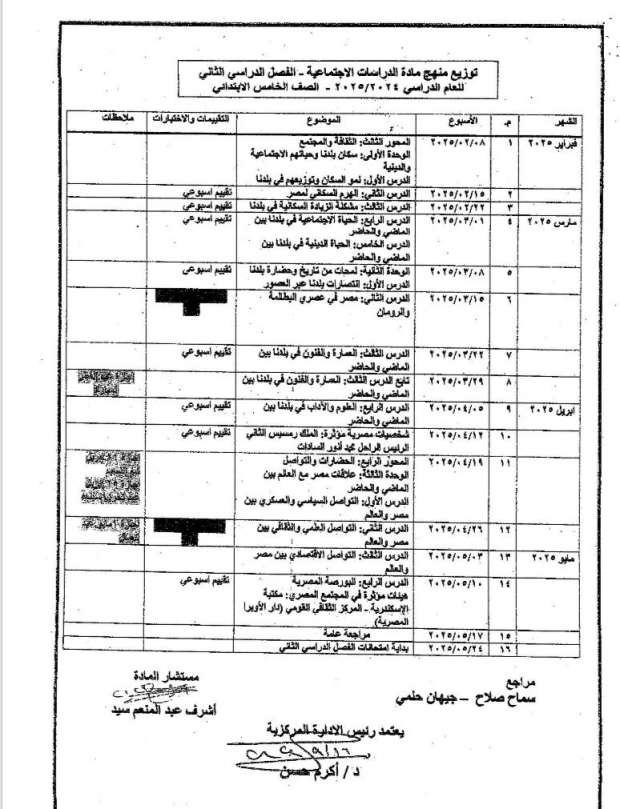 توزيع منهج مادة الدراسات الاجتماعية - الفصل الدراسي الثاني
للعام الدراسي ٢٠٢٥/٢٠٢٤ - الصف الخامس الابتدائي
الشهر م. الأسبوع الموضوع التقييمات والاختبارات ملاحظات
فبراير ٢٠٢٥ ١ ٢٠٢٥/٠٢/٠٨ المحور الثالث: الثقافة والمجتمع
الوحدة الأولى: سكان بلدنا وحياتهم الاجتماعية
والدينية
الدرس الأول: نمو السكان وتوزيعهم في بلدنا
٢ ٢٠٢٥/٠٢/١٥ الدرس الثاني: الهرم السكاني لمصر تقييم أسبوعي
٣ ٢٠٢٥/٠٢/٢٢ الدرس الثالث: مشكلة الزيادة السكانية في بلدنا تقييم أسبوعي
مارس ٢٠٢٥ ٤ ٢٠٢٥/٠٣/٠١ الدرس الرابع: الحياة الاجتماعية في بلدنا بين تقييم أسبوعي
الماضي والحاضر
الدرس الخامس: الحياة الدينية في بلدنا بين
الماضي والحاضر
٥ ٢٠٢٥/٠٣/٠٨ الوحدة الثانية: لمحات من تاريخ وحضارة بلدنا تقييم أسبوعي
الدرس الأول: انتصارات بلدنا عبر العصور
٦ ٢٠٢٥/٠٣/١٥ الدرس الثاني: مصر في عصري البطالمة
والرومان
٧ ٢٠٢٥/٠٣/٢٢ الدرس الثالث: العمارة والفنون في بلدنا بين تقييم أسبوعي
الماضي والحاضر
٨ ٢٠٢٥/٠٣/٢٩ تابع الدرس الثالث: العمارة والفنون في بلدنا بين
الماضي والحاضر
ابريل ٢٠٢٥ ٩ ٢٠٢٥/٠٤/٠٥ الدرس الرابع: العلوم والآداب في بلدنا بين تقييم أسبوعي
الماضي والحاضر
١٠ ٢٠٢٥/٠٤/١٢ شخصيات مصرية مؤثرة: الملك رمسيس الثاني تقييم أسبوعي
الرئيس الراحل محمد أنور السادات
١١ ٢٠٢٥/٠٤/١٩ المحور الرابع: الحضارات والتواصل
الوحدة الثالثة: علاقات مصر مع العالم بين
الماضي والحاضر
الدرس الأول: التواصل السياسي والعسكري بين
مصر والعالم
١٢ ٢٠٢٥/٠٤/٢٦ الدرس الثاني: التواصل العلمي والثقافي بين
مصر والعالم
مايو ٢٠٢٥ ١٣ ٢٠٢٥/٠٥/٠٣ الدرس الثالث: التواصل الاقتصادي بين مصر
والعالم
١٤ ٢٠٢٥/٠٥/١٠ الدرس الرابع: البورصة المصرية تقييم أسبوعي
هيئات مؤثرة في المجتمع المصري: مكتبة
الإسكندرية - المركز الثقافي القومي (دار الأوبرا
المصرية)
١٥ ٢٠٢٥/٠٥/١٧ مراجعة عامة
١٦ ٢٠٢٥/٠٥/٢٤ بداية امتحانات الفصل الدراسي الثاني
مراجع
سماح صلاح - جيهان حلمي
مستشار المادة
أشرف عبد المنعم سيد
يعتمد رئيس الادارة المركزية
د / أكرم حسن